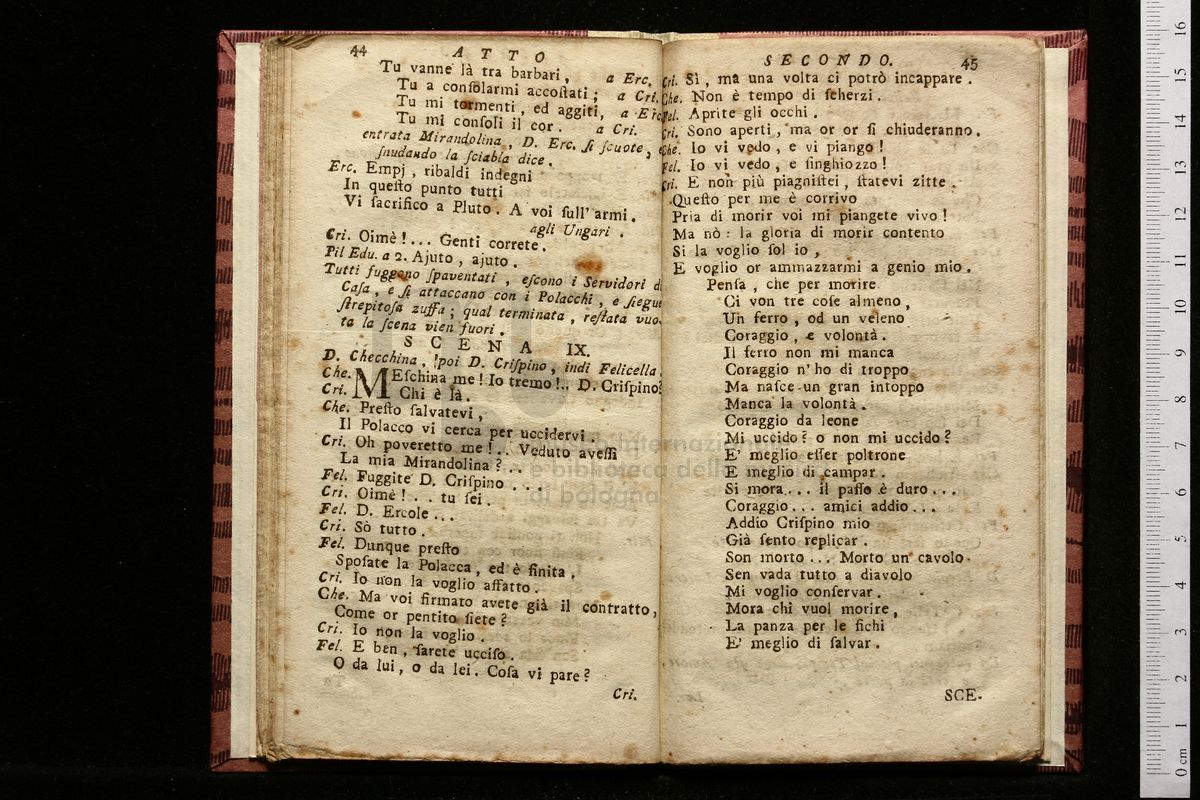 44
A T T O
Tu vanne là tra barbari, a Erc.
Tu a conſolarmi accoſtati; a Cri.
Tu mi tormenti, ed aggiti, a Erc.
Tu mi conſoli il cor. a Cri.
entrata Mirandolina, D. Erc. ſi ſcuote, e
ſnudando la ſciabla dice.
Erc. Empj, ribaldi indegni
In queſto punto tutti
Vi ſacrifico a Pluto. A voi ſull' armi.
agli Ungari.
Cri. Oimè!... Genti correte.
Pil Edu. a 2. Ajuto, ajuto.
Tutti fuggono ſpaventati, eſcono i Servidori di
Caſa, e ſi attaccano con i Polacchi, e ſiegue
ſtrepitoſa zuffa; qual terminata, reſtata vuo-
ta la ſcena vien fuori.
S C E N A IX.
D. Checchina, poi D. Criſpino, indi Felicella.
Che. MEſchina me! Io tremo!.. D. Criſpino?
Cri. Chi è là.
Che. Preſto ſalvatevi,
Il Polacco vi cerca per uccidervi.
Cri. Oh poveretto me!.. Veduto aveſſi
La mia Mirandolina?..
Fel. Fuggite D. Criſpino...
Cri. Oimè!.. tu ſei.
Fel. D. Ercole...
Cri. Sò tutto.
Fel. Dunque preſto
Spoſate la Polacca, ed è finita,
Cri. Io non la voglio affatto.
Che. Ma voi firmato avete già il contratto,
Come or pentito ſiete?
Cri. Io non la voglio.
Fel. E ben, ſarete ucciſo.
O da lui, o da lei. Coſa vi pare?
Cri.
SECONDO. 45
Cri. Sì, ma una volta ci potrò incappare.
Che. Non è tempo di ſcherzi.
Fel. Aprite gli occhi.
Cri. Sono aperti, ma or or ſi chiuderanno.
Che. Io vi vedo, e vi piango!
Fel. Io vi vedo, e ſinghiozzo!
Cri. E non più piagniſtei, ſtatevi zitte.
Queſto per me è corrivo
Pria di morir voi mi piangete vivo!
Ma nò: la gloria di morir contento
Si la voglio ſol io,
E voglio or ammazzarmi a genio mio.
Penſa, che per morire
Ci von tre coſe almeno,
Un ferro, od un veleno
Coraggio, e volontà.
Il ferro non mi manca
Coraggio n' ho di troppo
Ma naſce un gran intoppo
Manca la volontà.
Coraggio da leone
Mi uccido? o non mi uccido?
E' meglio eſſer poltrone
E meglio di campar.
Si mora... il paſſo è duro...
Coraggio... amici addio...
Addio Criſpino mio
Già ſento replicar.
Son morto... Morto un cavolo
Sen vada tutto a diavolo
Mi voglio conſervar.
Mora chi vuol morire,
La panza per le fichi
E' meglio di ſalvar.
SCE-